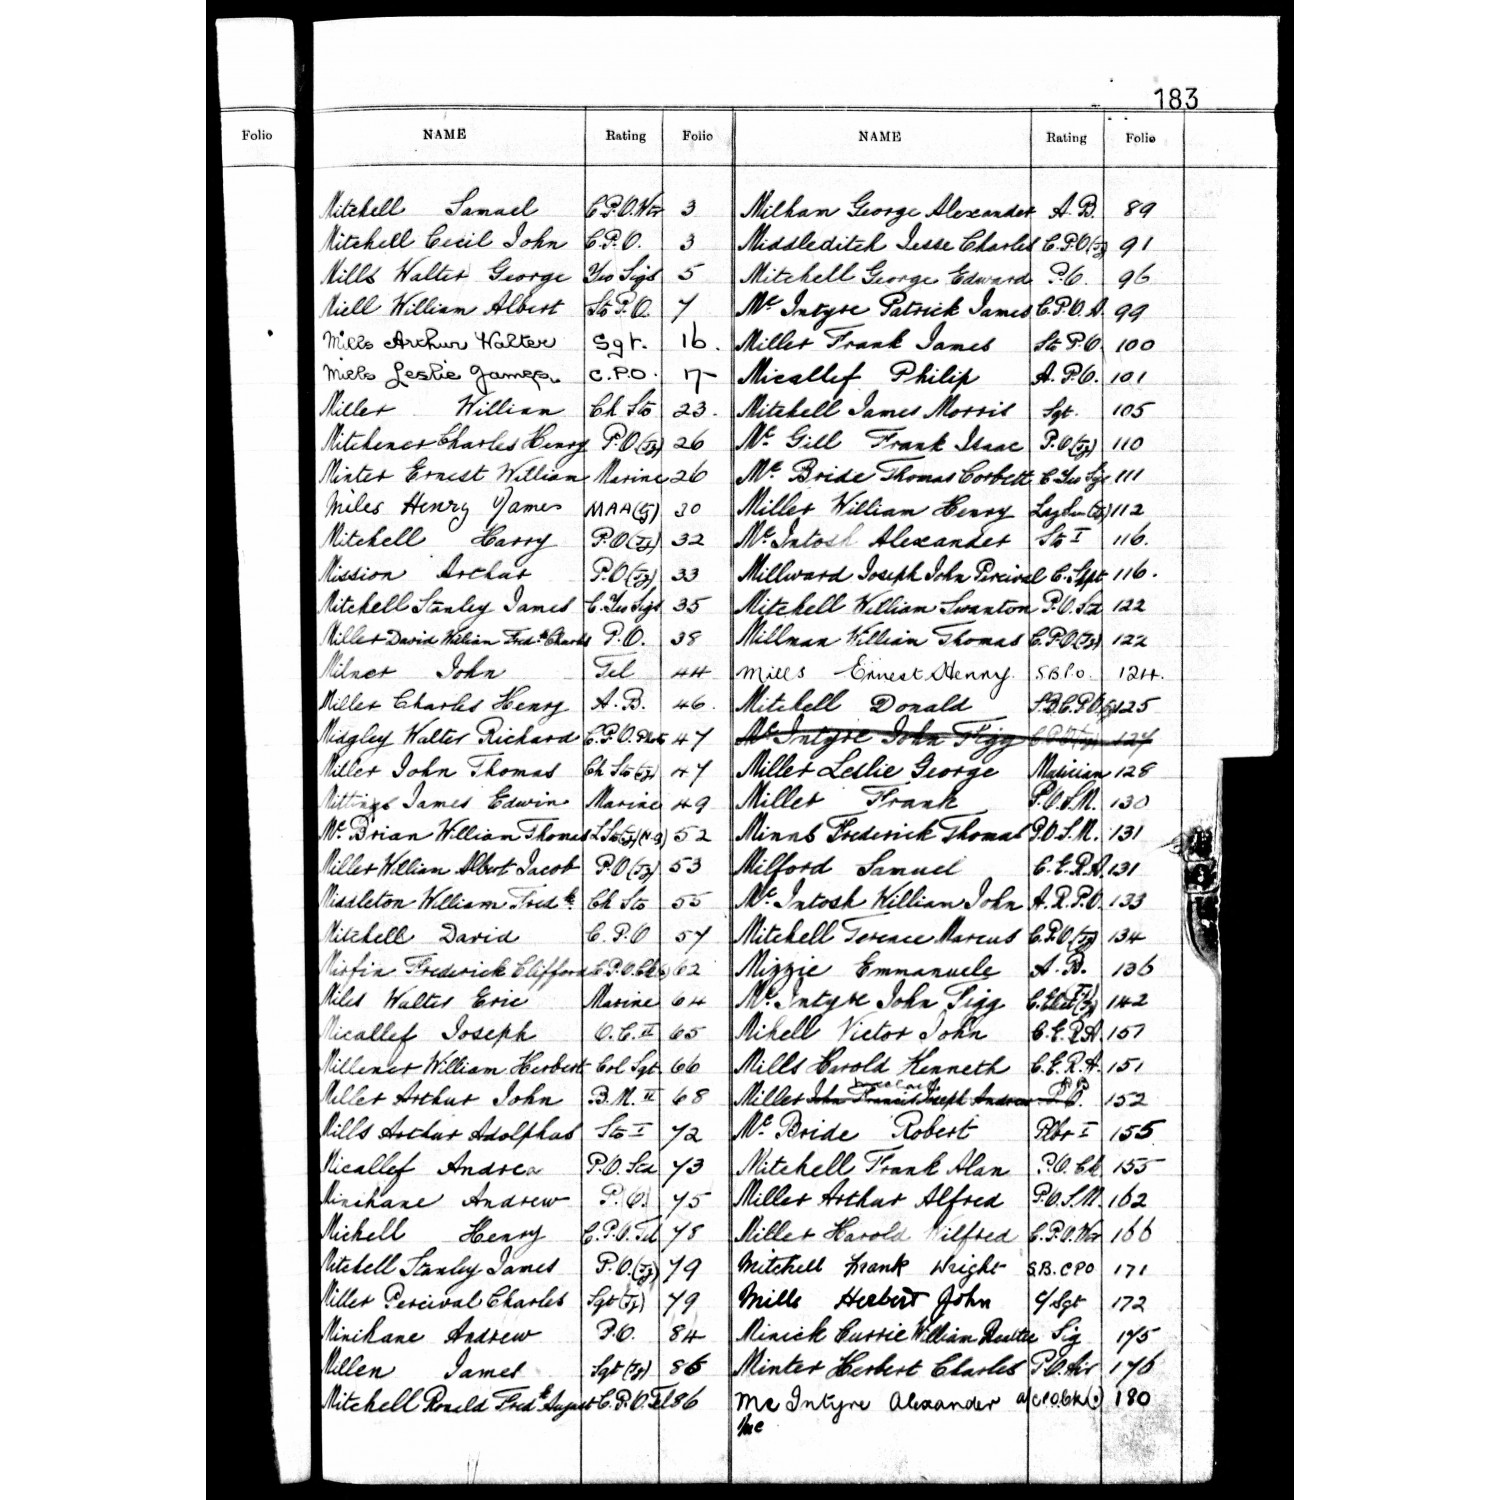 183
Folio
NAME Rating Folio NAME Rating Folio
Mitchell Samuel C.P.O. Wtr 3 Milham George Alexander A.B. 89
Mitchell Cecil John C.P.O. 3 Middleditch Jesse Charles C.P.O (Tg) 91
Mills Walter George Yeo Sigs 5 Mitchell George Edward P.O. 96
Miell William Albert Sto P.O. 7 Mc Intyre Patrick James C.P.O. A. 99
Mills Arthur Walter Sgt. 16. Miller Frank James Sto P.O 100
Mills Leslie James C.P.O. 17 Micallef Philip A.P.O. 101
Miller William Ch Sto 23. Mitchell James Morris Sgt. 105
Mitchener Charles Henry P.O (Tg) 26 Mc Gill Frank Isaac P.O (Tg) 110
Minter Ernest William Marine 26 Mc Bride Thomas Corbett C. Yeo Sigs 111
Miles Henry James MAA (Tg) 30 Miller William Henry (Tg) 112
Mitchell Harry P.O (Tg) 32 Mc Intosh Alexander Sto I 116.
Mission Arthur P.O (Tg) 33 Millward Joseph John Percival C. Shpt 116.
Mitchell Stanley James C. Yeo Sigs 35 Mitchell William Swanton P.O. Std 122
Miller David William Fredk Charles P.O. 38 Millman William Thomas C.P.O (Tg) 122
Milner John Tel 44 Mills Ernest Henry. S.B.P.O. 124.
Miller Charles Henry A.B. 46. Mitchell Donald S.B.C.P.O. 125
Midgley Walter Richard C.P.O. Phot 47 Mc Intyre John Figg 127
Miller John Thomas Ch Sto (Tg) 47 Miller Leslie George Musician 128
Mittings James Edwin Marine 49 Miller Frank P.O.S.M. 130
Mc Brian William Thomas L Sto (Tg) 52 Minns Frederick Thomas P.O.S.M. 131
Miller William Albert Jacob P.O (Tg) 53 Milford Samuel C.E.R.A. 131
Middleton William Fredk. Ch Sto 55 Mc Intosh William John A.R.P.O. 133
Mitchell David C.P.O 57 Mitchell Terence Marcus C.P.O (Tg) 134
Mirfin Frederick Clifford C.P.O. 62 Mizzie Emmanuele A.B. 136
Miles Walter Eric Marine 64 Mc Intyre John Figg C. Elect (Tg) 142
Micallef Joseph O.C. II 65 Mihell Victor John C.E.R.A. 151
Millener William Herbert Col Sgt. 66 Mills Harold Kenneth C.E.R.A. 151
Miller Arthur John B.M. II 68 Miller John Francis Joseph Andrew P.O. 152
Mills Arthur Adolphus Sto I 72 Mc Bride Robert Plbr I 155
Micallef Andrea P.O. Std 73 Mitchell Frank Alan P.O. Ck 155
Minihane Andrew P.O. 75 Miller Arthur Alfred P.O.S.M. 162
Michell Henry C.P.O. Tel 78 Miller Harold Wilfred C.P.O. Wtr 166
Mitchell Stanley James P.O. (Tg) 79 Mitchell Frank Wright S.B. CPO 171
Miller Percival Charles Sgt (Tg) 79 Mills Herbert John C/Sgt 172
Minihane Andrew P.O. 84 Minick Currie William Sig 175
Millen James Sgt (Tg) 85 Minter Herbert Charles P.O. Air 176
Mitchell Ronald Fredk August C.P.O. Tel 86 Mc Intyre Alexander 180
Mc